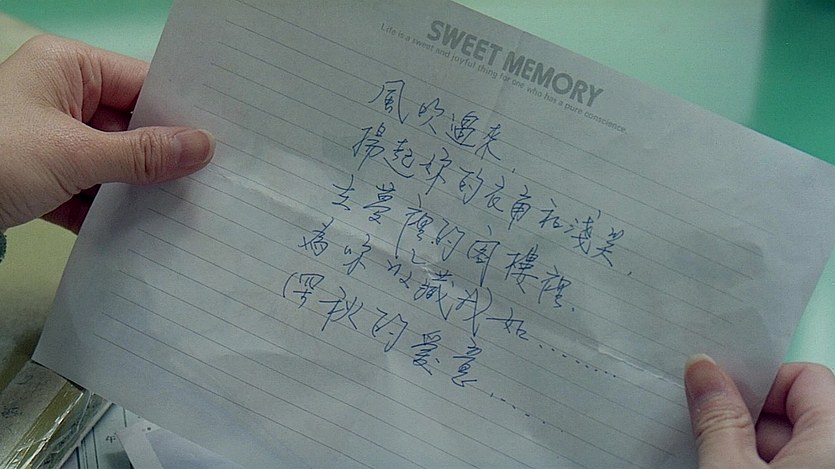 SWEET MEMORY
Life is a sweet and joyful thing for one who has a pure conscience.
風吹過來,
揚起妳的衣角和淺笑,
去夢裡的閣樓裡,
為妳收藏我如.........
深秋的愛意.........